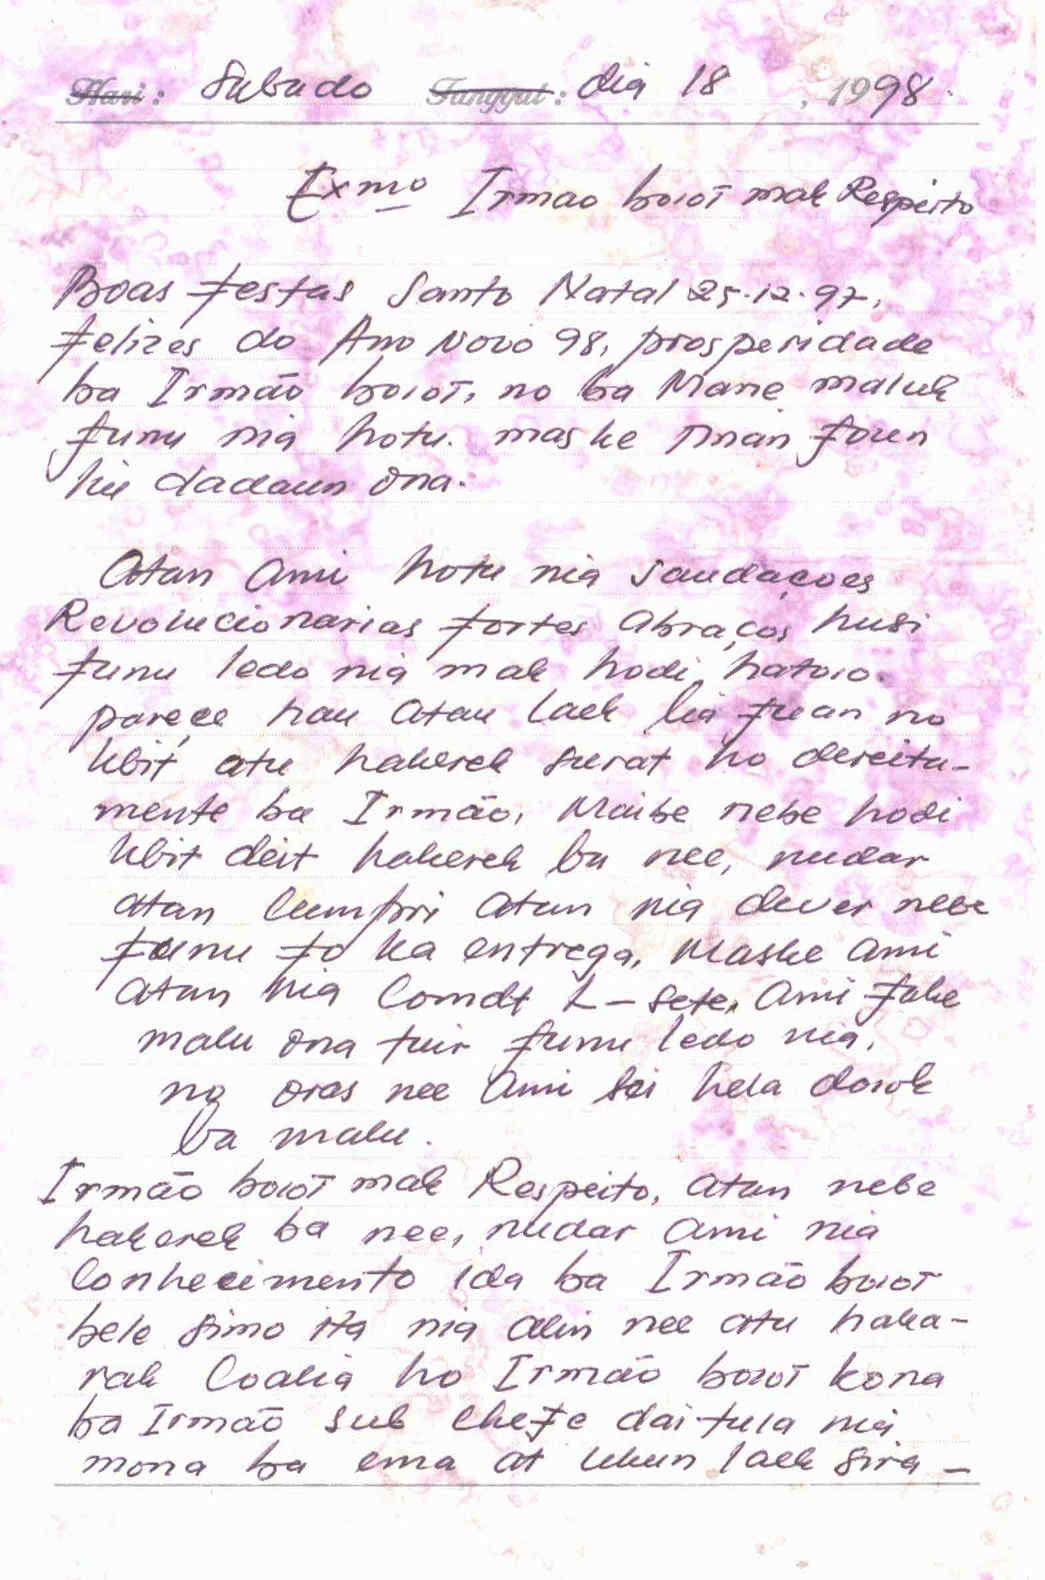 Hari : Sabado Tanggal : dia 18 , 1998.
Exmo Irmao boiot mak Respeito
Boas festas Santo Natal 25.12.97,
felizes do Ano Novo 98, prosperidade
ba Irmão boiot, no ba Mane maluk
funu nia hotu. maske Tinan foun
liu dadaun ona.
Atan Ami hotu nia saudaçoes
Revolucionarias fortes abraços husi
funu ledo nia mak hodi hatoio.
pareçe hau atau laek lia fuan no
kbit atu hakerek surat ho dereita-
mente ba Irmão, Maibe nebe hodi
kbit deit hakerek ba nee, nudar
atan Cumpri atan nia dever nebe
funu fo ka entrega, Maske ami
atan nia Comdt L-Sete, Ami fahe
malu ona tuir funu ledo nia,
no oras nee Ami sei hela dook
ba malu.
Irmão boiot mak Respeito, atan nebe
hakerek ba nee, nudar ami nia
Conhecimento ida ba Irmão boiot
bele simo ita nia alin nee atu haka-
rak Coalia ho Irmão boiot kona
ba Irmão sub chefe dai-tula nia
mona ba ema at ukun laek sira -